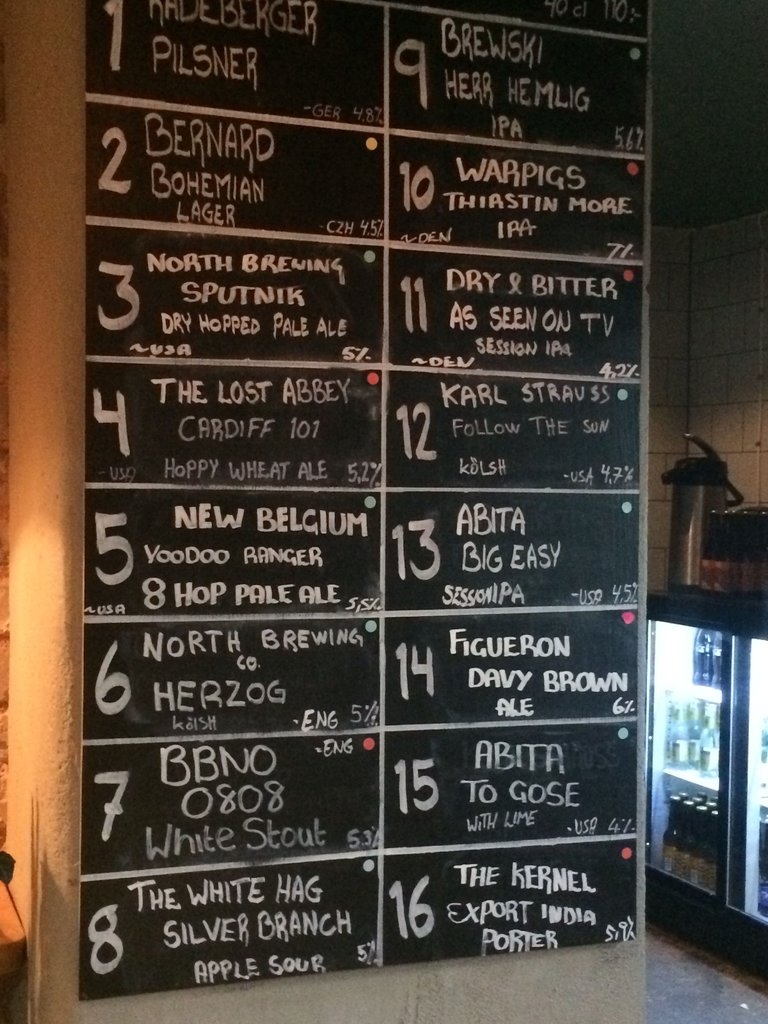 40 cl 110:-
1 RADEBERGER
PILSNER
-GER 4.8%
2 BERNARD
BOHEMIAN
LAGER
-CZH 4.5%
3 NORTH BREWING
SPUTNIK
DRY HOPPED PALE ALE
~USA 5%
4 THE LOST ABBEY
CARDIFF 101
HOPPY WHEAT ALE
-USA 5,2%
5 NEW BELGIUM
VOODOO RANGER
8 HOP PALE ALE
~USA 5,5%
6 NORTH BREWING
CO.
HERZOG
KÖLSH
-ENG 5%
7 BBNO
-ENG
0808
White Stout 5.3%
8 THE WHITE HAG
SILVER BRANCH
APPLE SOUR
5%
9 BREWSKI
HERR HEMLIG
IPA
5,6%
10 WARPIGS
THIRSTIN MORE
IPA
~DEN 7%
11 DRY & BITTER
AS SEEN ON TV
SESSION IPA
~DEN 4,2%
12 KARL STRAUSS
FOLLOW THE SUN
KÖLSH -USA 4,7%
13 ABITA
BIG EASY
SESSONIPA -USA 4,5%
14 FIGUERON
DAVY BROWN
ALE 6%
15 ABITA
TO GOSE
WITH LIME -USA 4%
16 THE KERNEL
EXPORT INDIA
PORTER 5,9%